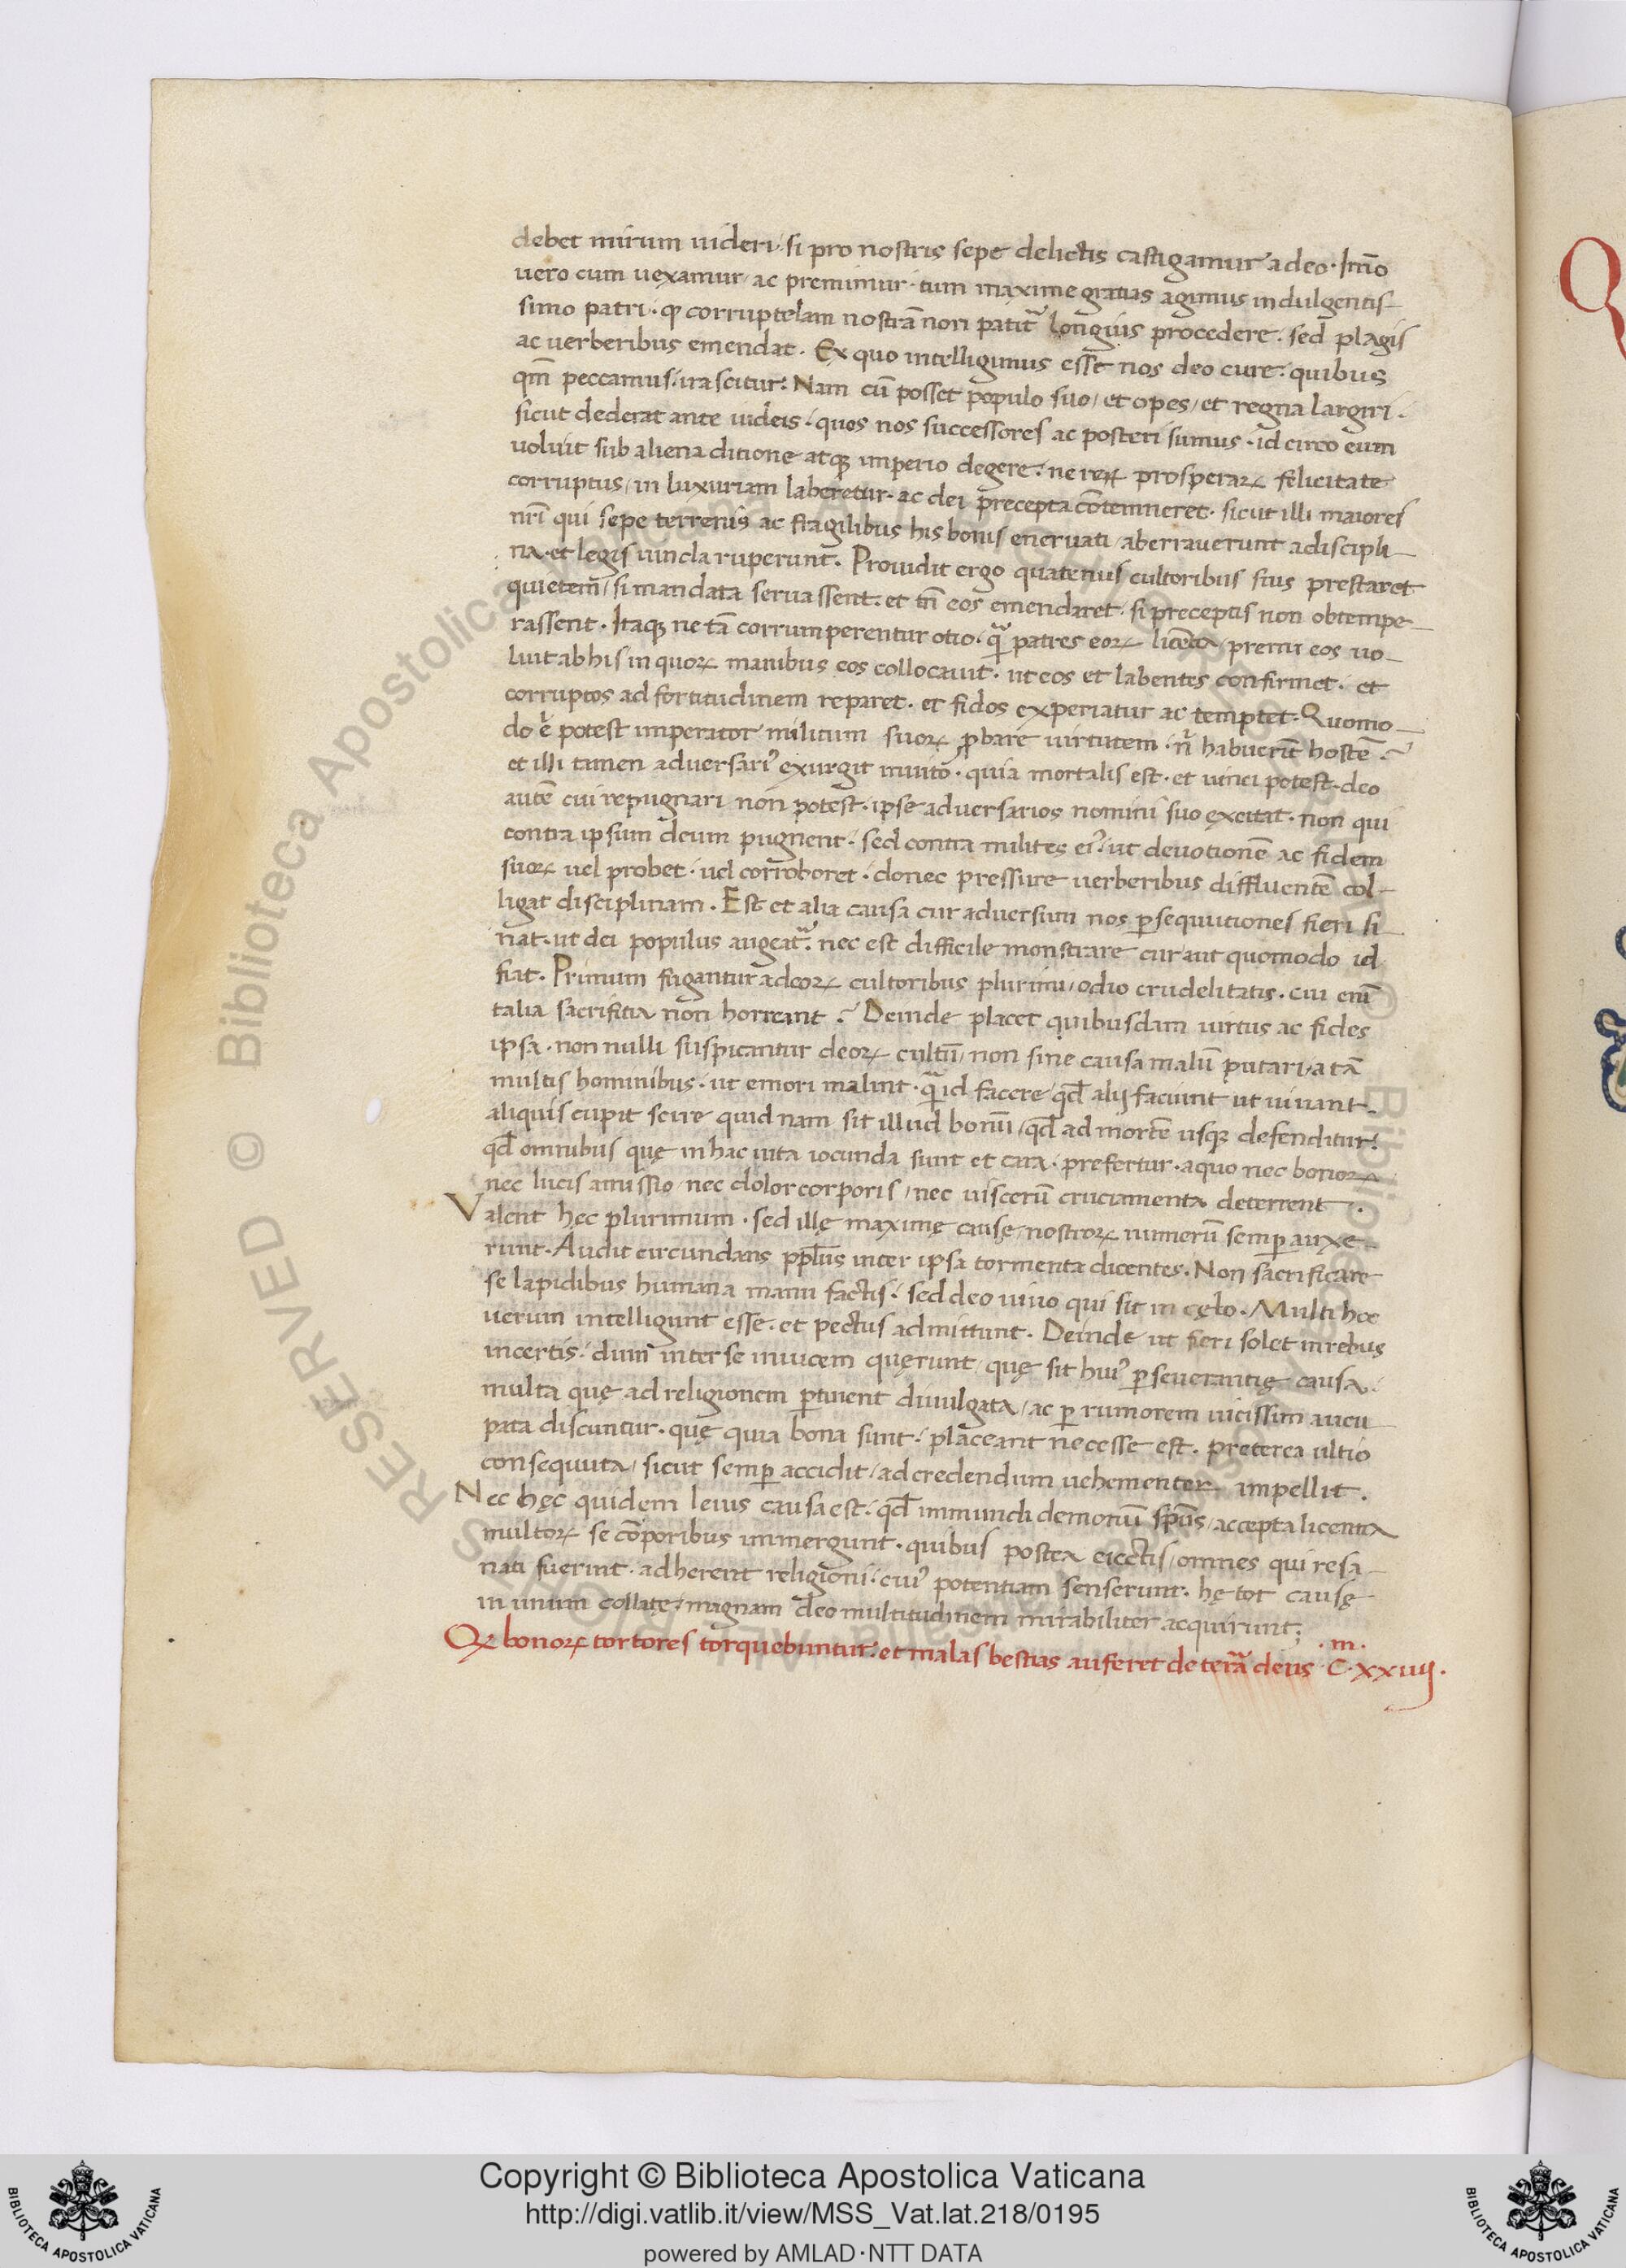 debet mirum uideri · si pro nostris sepe delictis castigamur a deo · Im̄o
uero cum uexamur / ac premimur · tum maxime gratias agimus indulgentis-
simo patri · ꝙ corruptelam nostrā non patit᷑ longius procedere · sed plagis
ac uerberibus emendat · Ex quo intelligimus esse nos deo cure · quibus
qm̄ peccamus · irascitur: Nam cū posset populo suo / et opes / et regna largiri ·
sicut dederat ante iudeis · quos nos successores ac posteri sumus · id circo eum
uoluit sub aliena ditione atqꝫ imperio degere · ne reꝝ prosperaꝝ felicitate
corruptus / in luxuriam laberetur · ac dei precepta cōtemneret · sicut illi maiores
nr̄i qui sepe terrenis ac fragilibus his bonis eneruati / aberrauerunt a discipli-
na · et legis uincla ruperunt · Prouidit ergo quatenus cultoribus suis prestaret
quietem / si mandata seruassent · et tn̄ eos emendaret · si preceptis non obtempe-
rassent · Itaqꝫ ne tā corrumperentur otio · q̄ patres eoꝝ licētia / premi eos uo-
luit ab his in quoꝝ manibus eos collocauit · ut eos et labentes confirmet · et
corruptos ad fortitudinem reparet · et fidos experiatur ac temptet · Quomo-
do .n. potest imperator militum suoꝝ ꝓbare uirtutem · nͥ habuerīt hostē ?
et illi tamen aduersariꝰ exurgit inuito · quia mortalis est · et uinci potest · deo
autē cui repugnari non potest · ipse aduersarios nomini suo excitat · non qui
contra ipsum deum pugnent · sed contra milites eiꝰ · ut deuotionē ac fidem
suoꝝ uel probet · uel corroboret · donec pressure uerberibus diffluentē col-
ligat disciplinam · Est et alia causa cur aduersum nos ꝑsequutiones fieri si-
nat · ut dei populus augeat᷑ · nec est difficile monstrare cur aut quomodo id
fiat · Primum fugantur a deoꝝ cultoribus plurimi / odio crudelitatis · cui enī
talia sacrificia non horreant ? Deinde placet quibusdam uirtus ac fides
ipsa · non nulli suspicantur deoꝝ cultū / non sine causa malū putari / a tā
multis hominibus · ut emori malint · q̄ id facere / qd̄ alij faciunt ut uiuant ·
aliquis cupit scire quid nam sit illud bonū / qd̄ ad mortē usqꝫ defenditur:
qd̄ omnibus quę in hac uita iocunda sunt et cara · prefertur · a quo nec bonoꝝ
nec lucis amissio / nec dolor corporis / nec uiscerū cruciamenta deterrent ·
Valent hęc plurimum · sed illę maximę causę / nostroꝝ numerū semꝑ auxe-
runt · Audit circundans pp̄lus inter ipsa tormenta dicentes · Non sacrificare
se lapidibus humana manu factis · sed deo uiuo qui sit in cęlo · Multi hoc
uerum intelligunt esse · et pectus admittunt · Deinde ut fieri solet in rebus
incertis · dum inter se inuicem quęrunt / quę sit huiꝰ ꝑseuerantię causa ·
multa quę ad religionem ꝑtinent diuulgata / ac ꝑ rumorem uicissim aucu-
pata discuntur · quę quia bona sunt · placeant necesse est · preterea ultio
consequuta / sicut semꝑ accidit / ad credendum uehementer impellit ·
Nec hęc quidem leuis causa est · qd̄ immundi demonū sp̄us / accepta licentia
multoꝝ se cōrporibus immergunt · quibus postea eiectis / omnes qui resa-
nati fuerint · adherent religioni · cuiꝰ potentiam senserunt · hę tot causę
in unum collatę / magnam deo multitudinem mirabiliter acquirunt:
Qꝫ bonoꝝ tortores torquebuntur: et malas bestias auferet de terrā deus · C · xxiiij ·
· m ·
Copyright © Biblioteca Apostolica Vaticana
http://digi.vatlib.it/view/MSS_Vat.lat.218/0195
powered by AMLAD·NTT DATA
BIBLIOTECA APOSTOLICA VATICANA
BIBLIOTECA APOSTOLICA VATICANA